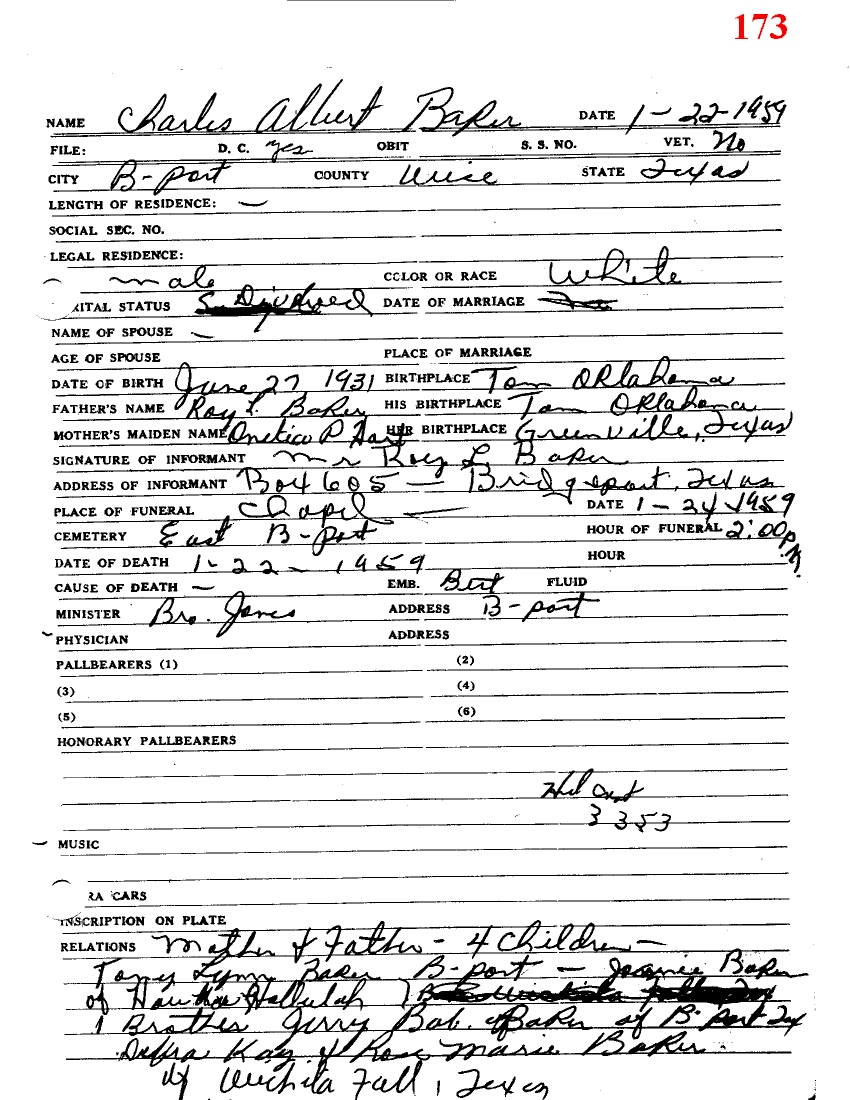 173
NAME Charles Albert Baker DATE 1-22-1959
FILE: D. C. yes OBIT S. S. NO. VET. No
CITY B-port COUNTY Wise STATE Texas
LENGTH OF RESIDENCE: —
SOCIAL SEC. NO.
LEGAL RESIDENCE:
male COLOR OR RACE White
RITAL STATUS S. Divorced DATE OF MARRIAGE
NAME OF SPOUSE —
AGE OF SPOUSE PLACE OF MARRIAGE
DATE OF BIRTH June 27 1931 BIRTHPLACE Tom Oklahoma
FATHER'S NAME Roy L. Baker HIS BIRTHPLACE Tom Oklahoma
MOTHER'S MAIDEN NAME P Hart HER BIRTHPLACE Greenville, Texas
SIGNATURE OF INFORMANT Mr Roy L Baker
ADDRESS OF INFORMANT Box 605 — Bridgeport, Texas
PLACE OF FUNERAL Chapel — DATE 1-24-1959
CEMETERY East B-port HOUR OF FUNERAL 2:00 P.M.
DATE OF DEATH 1-22-1959 HOUR
CAUSE OF DEATH — EMB. Burt FLUID
MINISTER Bro. Jones ADDRESS B-port
PHYSICIAN ADDRESS
PALLBEARERS (1) (2)
(3) (4)
(5) (6)
HONORARY PALLBEARERS
3353
MUSIC
RA CARS
INSCRIPTION ON PLATE
RELATIONS Mother & Father - 4 Children -
Tony Lynn Baker B-port - Joannie Baker
of
1 Brother Jerry Bob Baker of B-port Tex
Debra Kay & Rose Marie Baker
of Wichita Fall, Texas